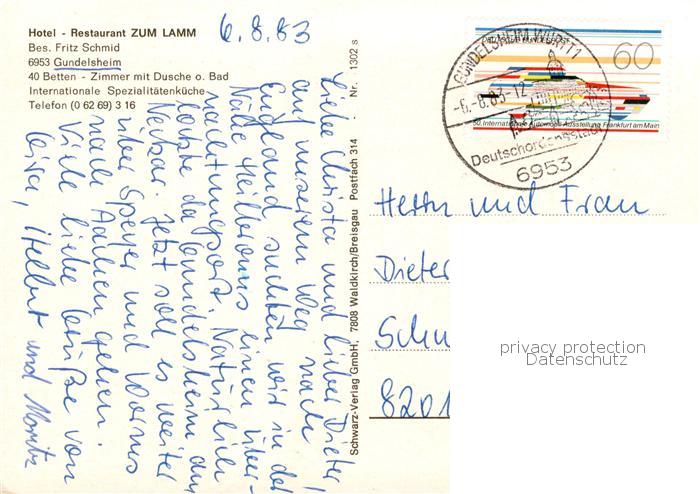 Hotel - Restaurant ZUM LAMM
Bes. Fritz Schmid
6953 Gundelsheim
40 Betten - Zimmer mit Dusche o. Bad
Internationale Spezialitätenküche
Telefon (0 62 69) 3 16
6.8.83
Liebe Christa und lieber Dieter!
Auf unserem Weg nach
England suchten wir in der
Nähe Heilbronns einen Über-
nachtungsort. Natürlich
lockte da Gundelsheim am
Neckar. Jetzt soll es weiter
über Speyer und Worms
nach Aachen gehen.
Viele liebe Grüße von
Helmut und Moritz
Schwarz-Verlag GmbH, 7808 Waldkirch/Breisgau Postfach 314 - Nr. 1302 s
60
50. Internationale Automobil-Ausstellung Frankfurt am Main
GUNDELSHEIM, WÜRTT 1
-6.-8.83-12
Deutschordensstadt
6953
Herrn und Frau
Dieter
Schu
8201
privacy protection
Datenschutz